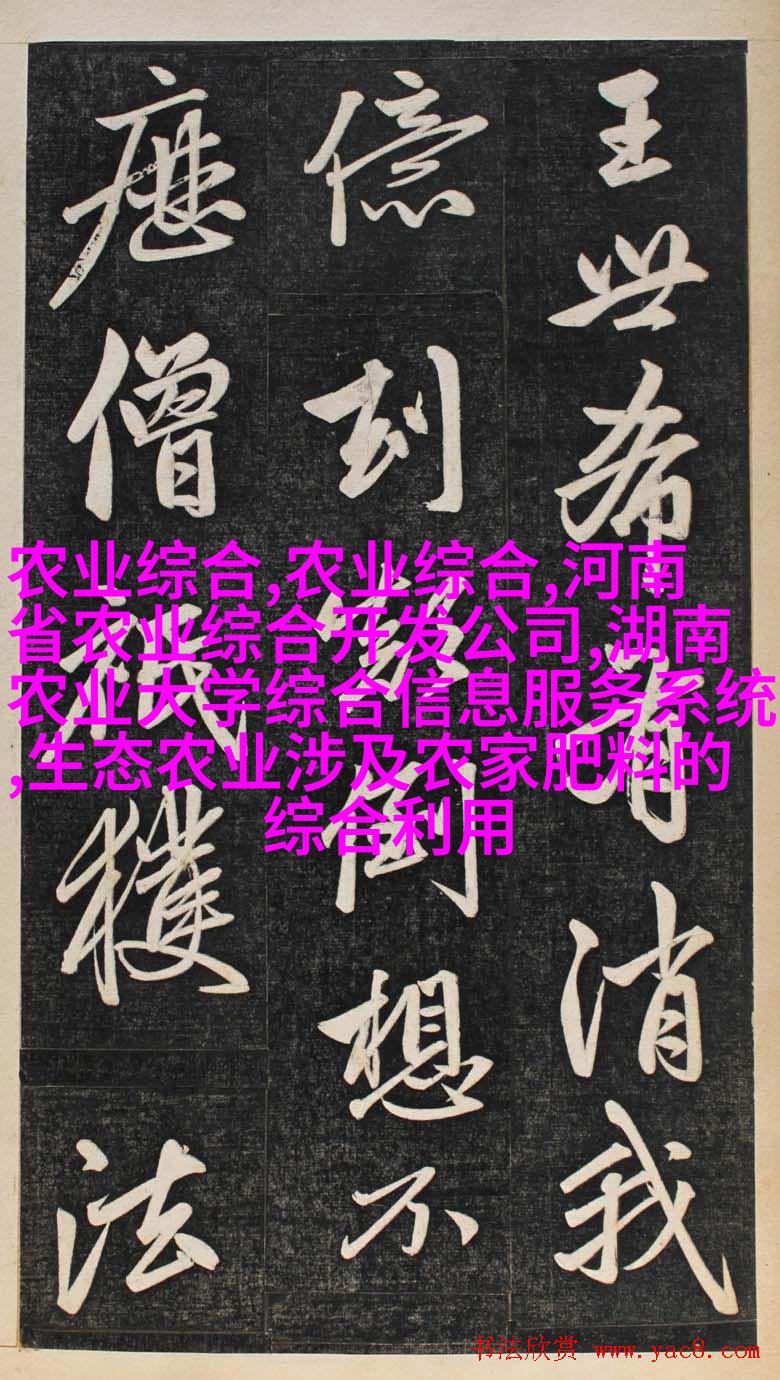 王世希有消我
億刧顛倒想不
歷僧祇穫法
农业综合,农业综合,河南
省农业综合开发公司,湖南
农业大学综合信息服务系统
,生态农业涉及农家肥料的
综合利用
书法欣赏 www.yac8.com